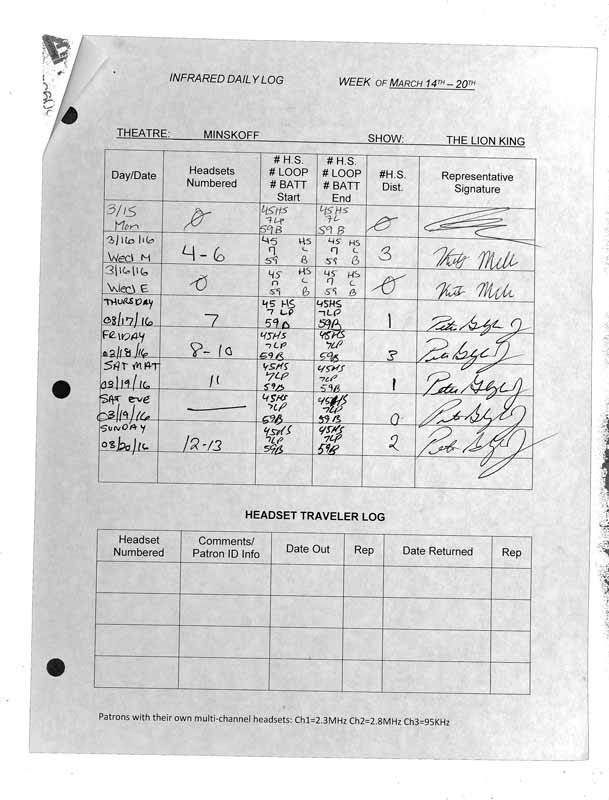 INFRARED DAILY LOG WEEK OF MARCH 14TH – 20TH
THEATRE: MINSKOFF SHOW: THE LION KING
Day/Date Headsets Numbered # H.S. # LOOP # BATT Start # H.S. # LOOP # BATT End #H.S. Dist. Representative Signature
3/15 Mon 0 45HS 7L 59B 45HS 7L 59B 0
3/16/16 Wed M 4-6 45 HS 7 L 59 B 45 HS 7 L 59 B 3
3/16/16 Wed E 0 45 HS 7 L 59 B 45 HS 7 L 59 B 0
THURSDAY 03/17/16 7 45 HS 7 LP 59B 45HS 7LP 59B 1
FRIDAY 03/18/16 8-10 45HS 7LP 59B 45HS 7LP 59B 3
SAT MAT 03/19/16 11 45HS 7LP 59B 45HS 7LP 59B 1
SAT EVE 03/19/16 — 45HS 7LP 59B 45HS 7LP 59B 0
SUNDAY 03/20/16 12-13 45HS 7LP 59B 45HS 7LP 59B 2
HEADSET TRAVELER LOG
Headset Numbered Comments/ Patron ID Info Date Out Rep Date Returned Rep
Patrons with their own multi-channel headsets: Ch1=2.3MHz Ch2=2.8MHz Ch3=95KHz